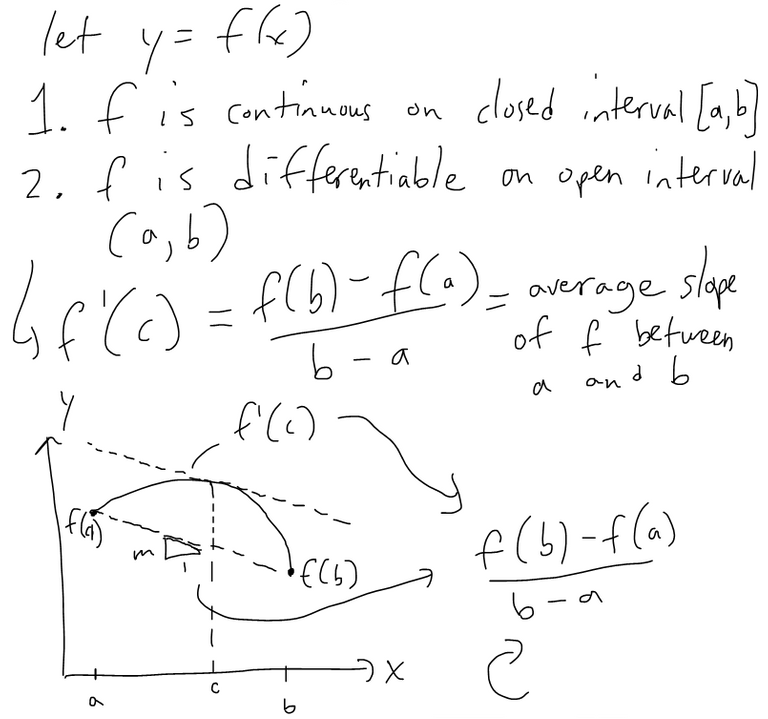 let y = f(x)
1. f is continuous on closed interval [a,b]
2. f is differentiable on open interval
(a,b)
↳ f'(c) = f(b) - f(a) / b - a = average slope
of f between
a and b
y
f'(c)
f(a)
m
1
f(b)
f(b) - f(a) / b - a
x
a
c
b